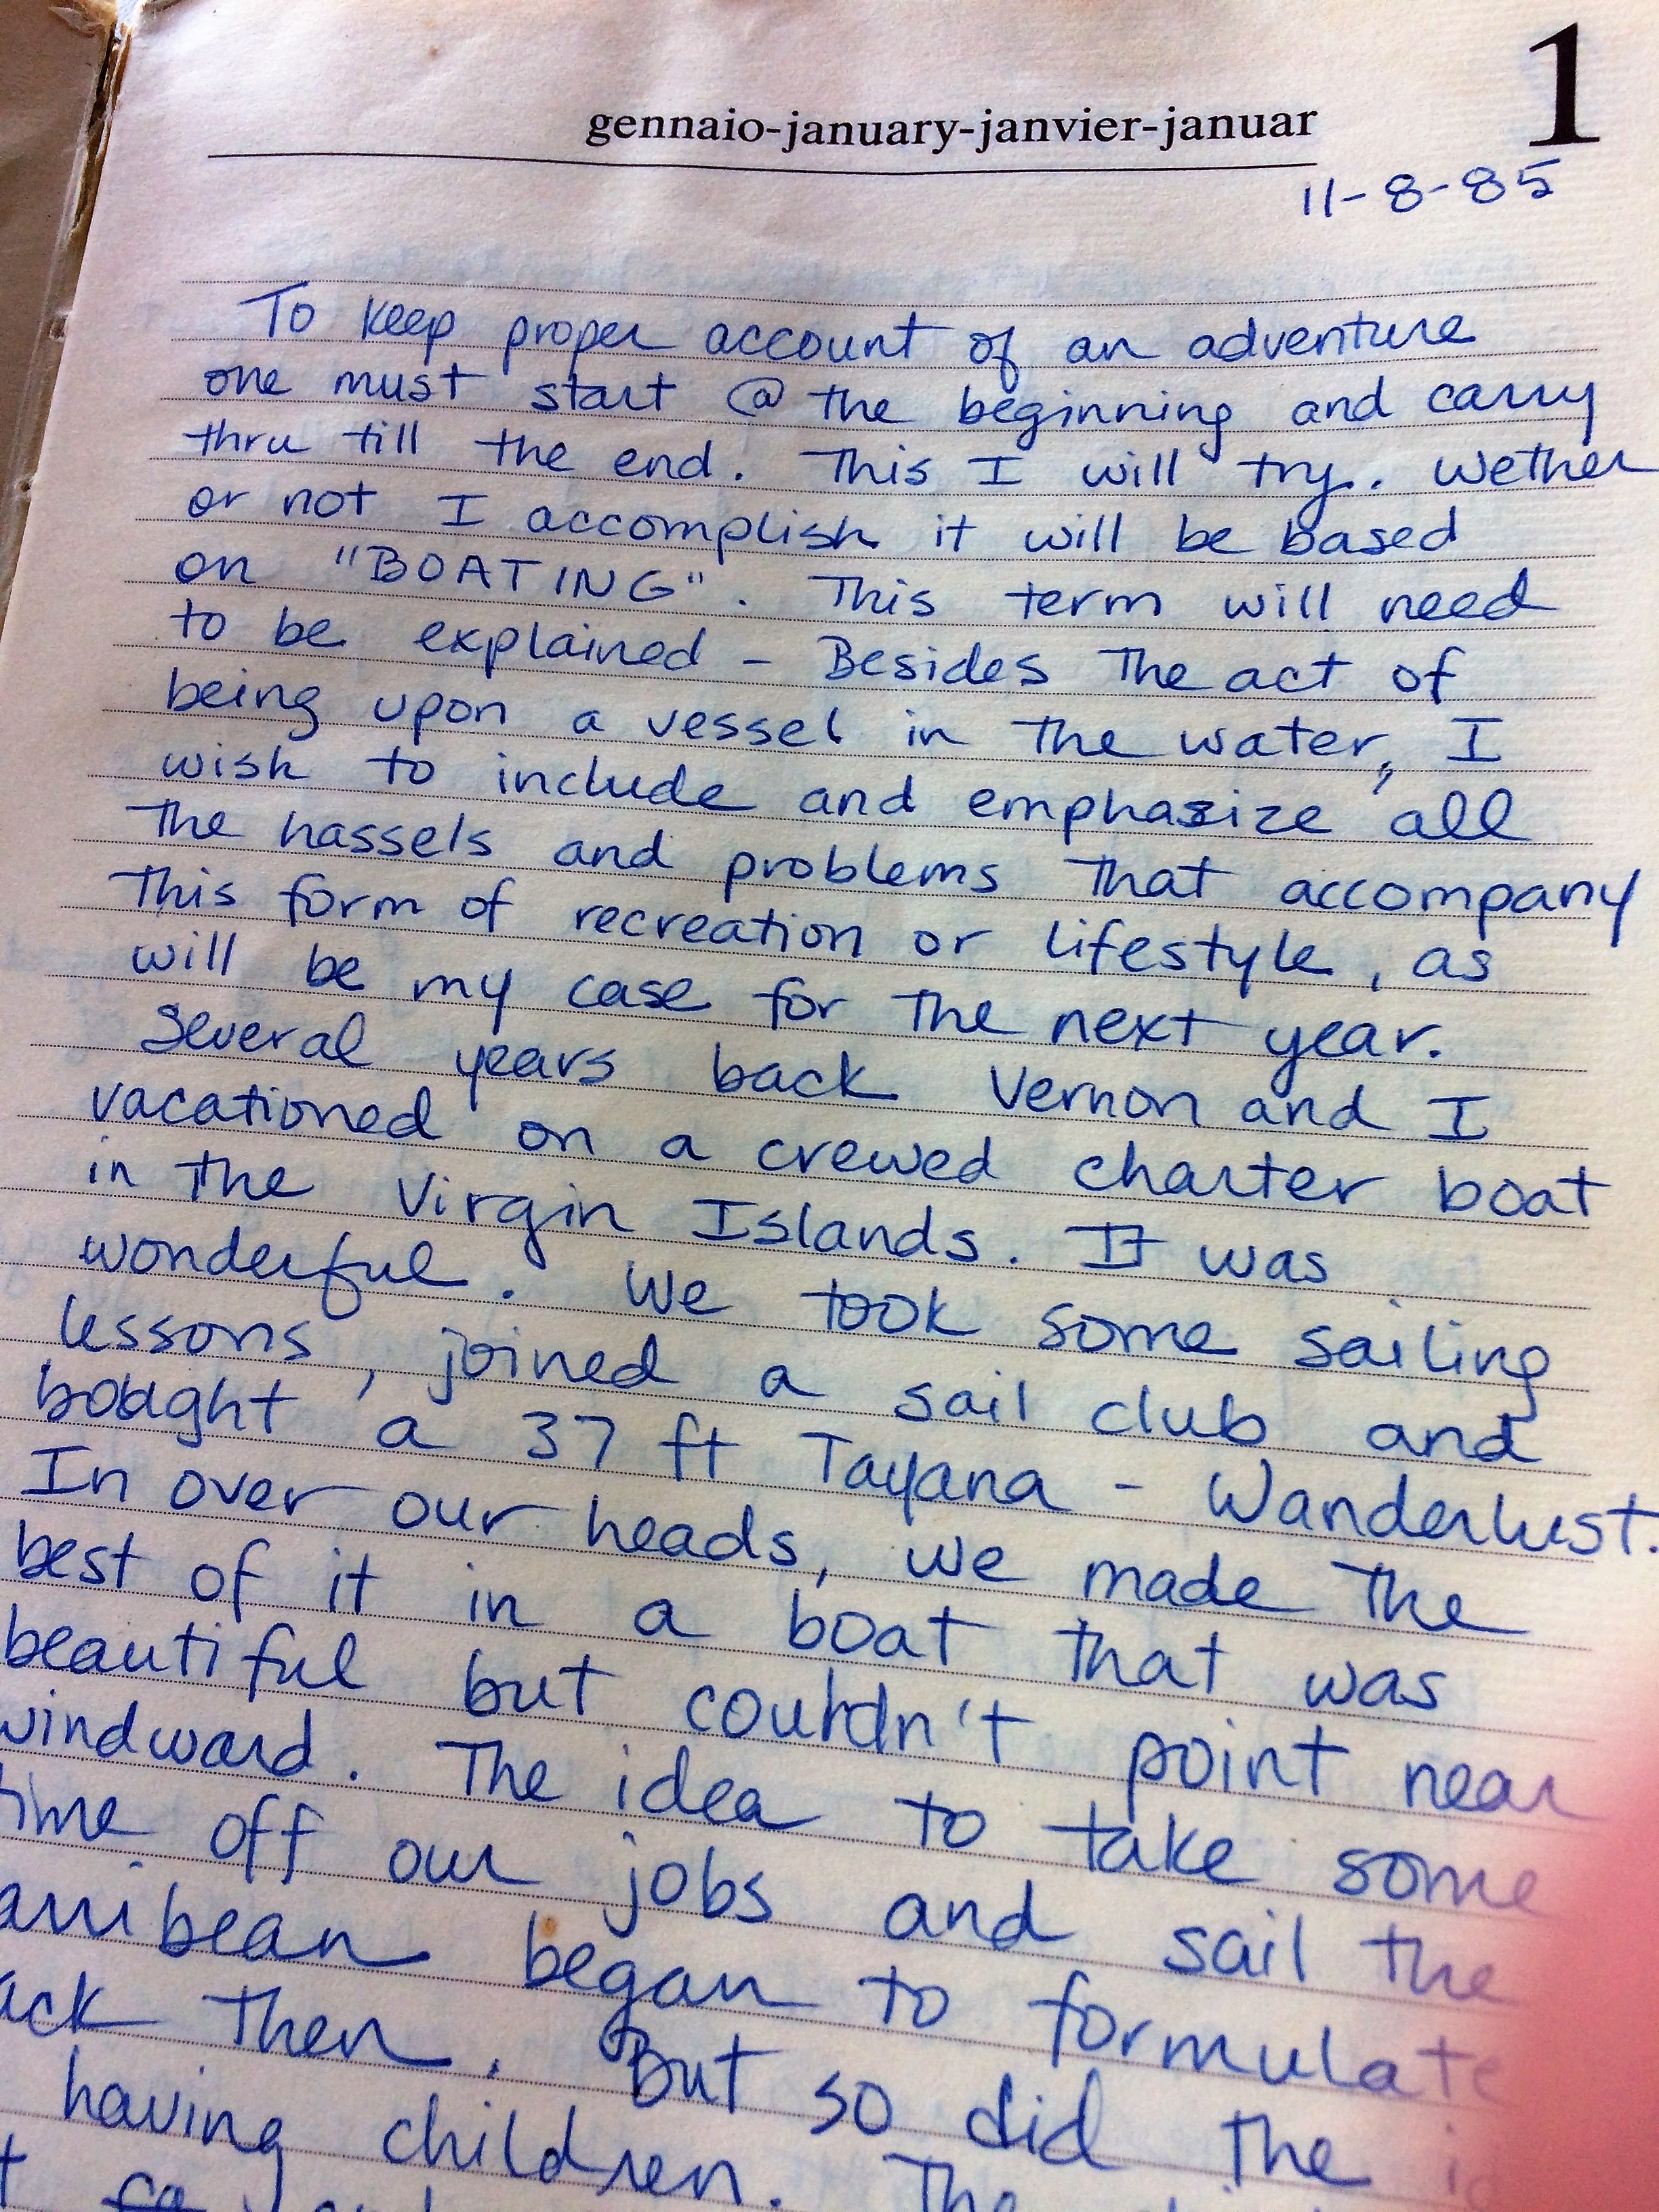 1
gennaio-january-janvier-januar
11-8-85
To keep proper account of an adventure
one must start @ the beginning and carry
thru till the end. This I will try. Wether
or not I accomplish it will be based
on "BOATING". This term will need
to be explained - Besides the act of
being upon a vessel in the water, I
wish to include and emphasize all
the hassels and problems that accompany
this form of recreation or lifestyle, as
will be my case for the next year.
Several years back Vernon and I
vacationed on a crewed charter boat
in the Virgin Islands. It was
wonderful. We took some sailing
lessons, joined a sail club and
bought a 37 ft Tayana - Wanderlust.
In over our heads, we made the
best of it in a boat that was
beautiful but couldn't point near
windward. The idea to take some
time off our jobs and sail the
arribean began to formulate
ack then. But so did the
having children. The